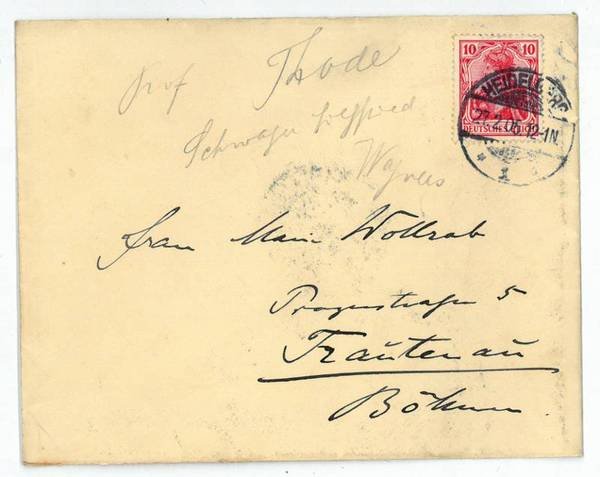 10 10
DEUTSCHES REICH
HEIDELBERG
27.2.05.12-1N.
* 1
Prof Thode
Schwager Siegfried
Wagners
Frau Marie Wollrab
Pragerstraße 5
Trautenau
Böhmen